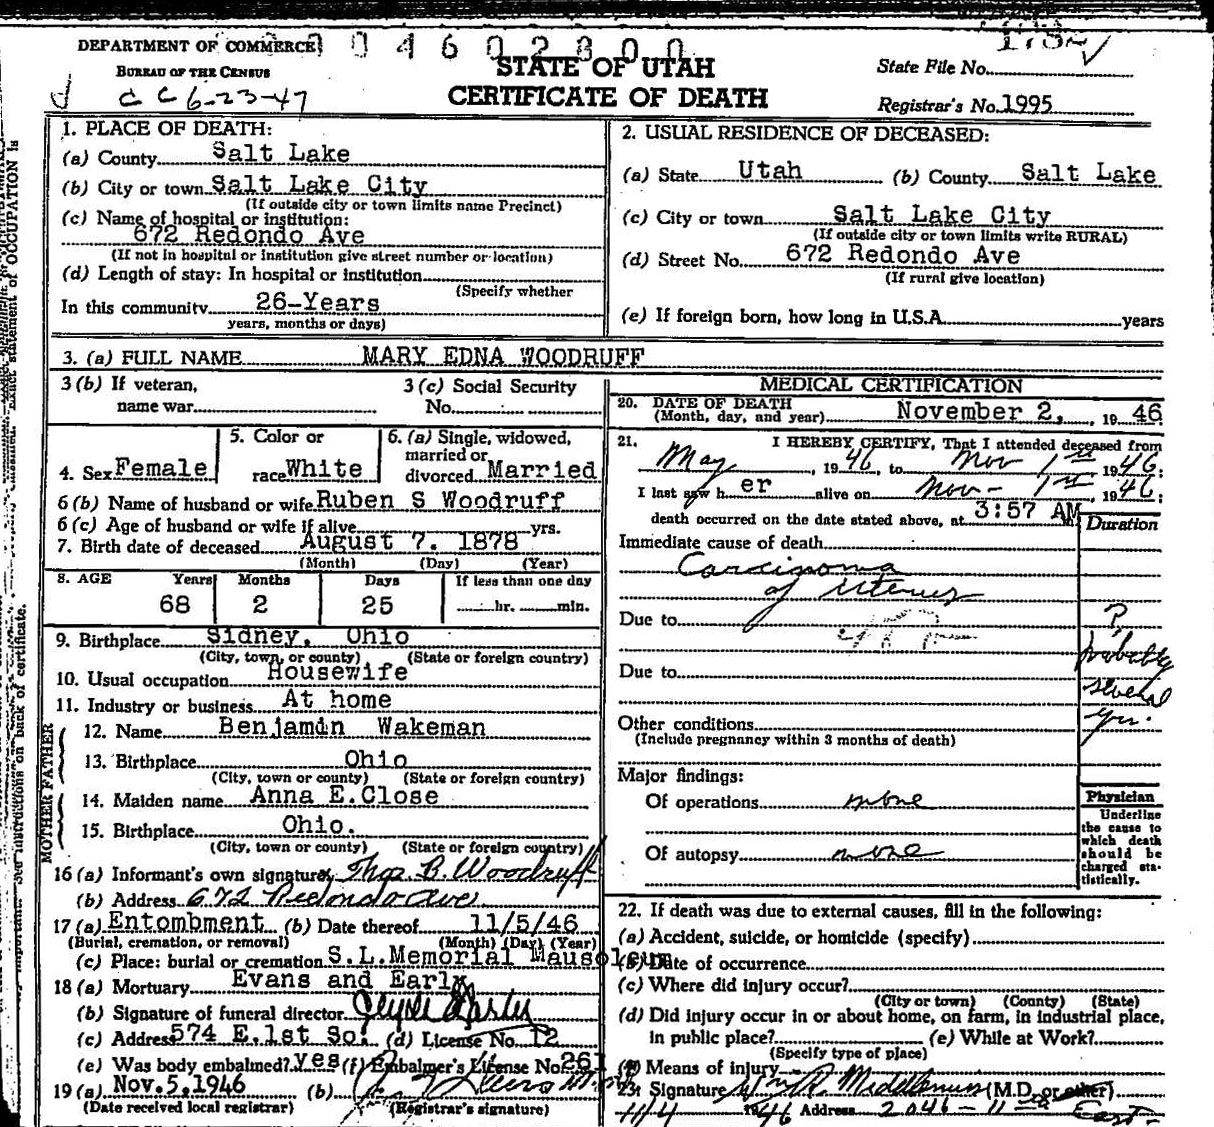 DEPARTMENT OF COMMERCE
BUREAU OF THE CENSUS
04602800
STATE OF UTAH
CERTIFICATE OF DEATH
State File No.
Registrar's No. 1995
C C 6-23-47
1. PLACE OF DEATH:
(a) County Salt Lake
(b) City or town Salt Lake City
(If outside city or town limits name Precinct)
(c) Name of hospital or institution:
672 Redondo Ave
(If not in hospital or institution give street number or location)
(d) Length of stay: In hospital or institution
(Specify whether
In this community 26-Years
years, months or days)
2. USUAL RESIDENCE OF DECEASED:
(a) State Utah (b) County Salt Lake
(c) City or town Salt Lake City
(If outside city or town limits write RURAL)
(d) Street No. 672 Redondo Ave
(If rural give location)
(e) If foreign born, how long in U.S.A. years
3. (a) FULL NAME MARY EDNA WOODRUFF
3 (b) If veteran,
name war
3 (c) Social Security
No.
4. Sex Female
5. Color or
race White
6. (a) Single, widowed,
married or
divorced Married
6 (b) Name of husband or wife Ruben S Woodruff
6 (c) Age of husband or wife if alive yrs.
7. Birth date of deceased August 7. 1878
(Month) (Day) (Year)
8. AGE Years Months Days If less than one day
68 2 25 hr. min.
9. Birthplace Sidney, Ohio
(City, town, or county) (State or foreign country)
10. Usual occupation Housewife
11. Industry or business At home
FATHER
12. Name Benjamin Wakeman
13. Birthplace Ohio
(City, town or county) (State or foreign country)
MOTHER
14. Maiden name Anna E.Close
15. Birthplace Ohio.
(City, town or county) (State or foreign country)
16 (a) Informant's own signature Thos. B. Woodruff
(b) Address 672 Redondo Ave
17 (a) Entombment (b) Date thereof 11/5/46
(Burial, cremation, or removal) (Month) (Day) (Year)
(c) Place: burial or cremation S.L.Memorial Mausoleum
18 (a) Mortuary Evans and Early
(b) Signature of funeral director
(c) Address 574 E.1st So. (d) License No. 12
(e) Was body embalmed? yes (f) Embalmer's License No. 261
19 (a) Nov.5,1946 (b)
(Date received local registrar) (Registrar's signature)
MEDICAL CERTIFICATION
20. DATE OF DEATH
(Month, day, and year) November 2, 19 46
21. I HEREBY CERTIFY, That I attended deceased from
May, 1946, to Nov 1st 1946;
I last saw her alive on Nov - 1st, 1946;
death occurred on the date stated above, at 3:57 AM
Duration
Immediate cause of death
Carcinoma
of uterus
Due to
?
probably
Due to
several
yrs.
Other conditions
(Include pregnancy within 3 months of death)
Major findings:
Of operations none
Of autopsy none
Physician
Underline
the cause to
which death
should be
charged sta-
tistically.
22. If death was due to external causes, fill in the following:
(a) Accident, suicide, or homicide (specify)
(b) Date of occurrence
(c) Where did injury occur?
(City or town) (County) (State)
(d) Did injury occur in or about home, on farm, in industrial place,
in public place? (e) While at Work?
(Specify type of place)
(f) Means of injury
23. Signature Wm R. (M.D. or other)
11/4 1946 Address 2046 - East